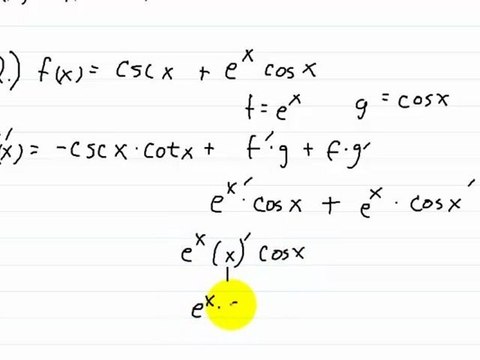 2.) f(x) = csc x + e^x cos x
f = e^x g = cos x
'(x) = -csc x · cot x + f' · g + f · g'
e^x' · cos x + e^x · cos x'
e^x (x)' cos x
e^x · -